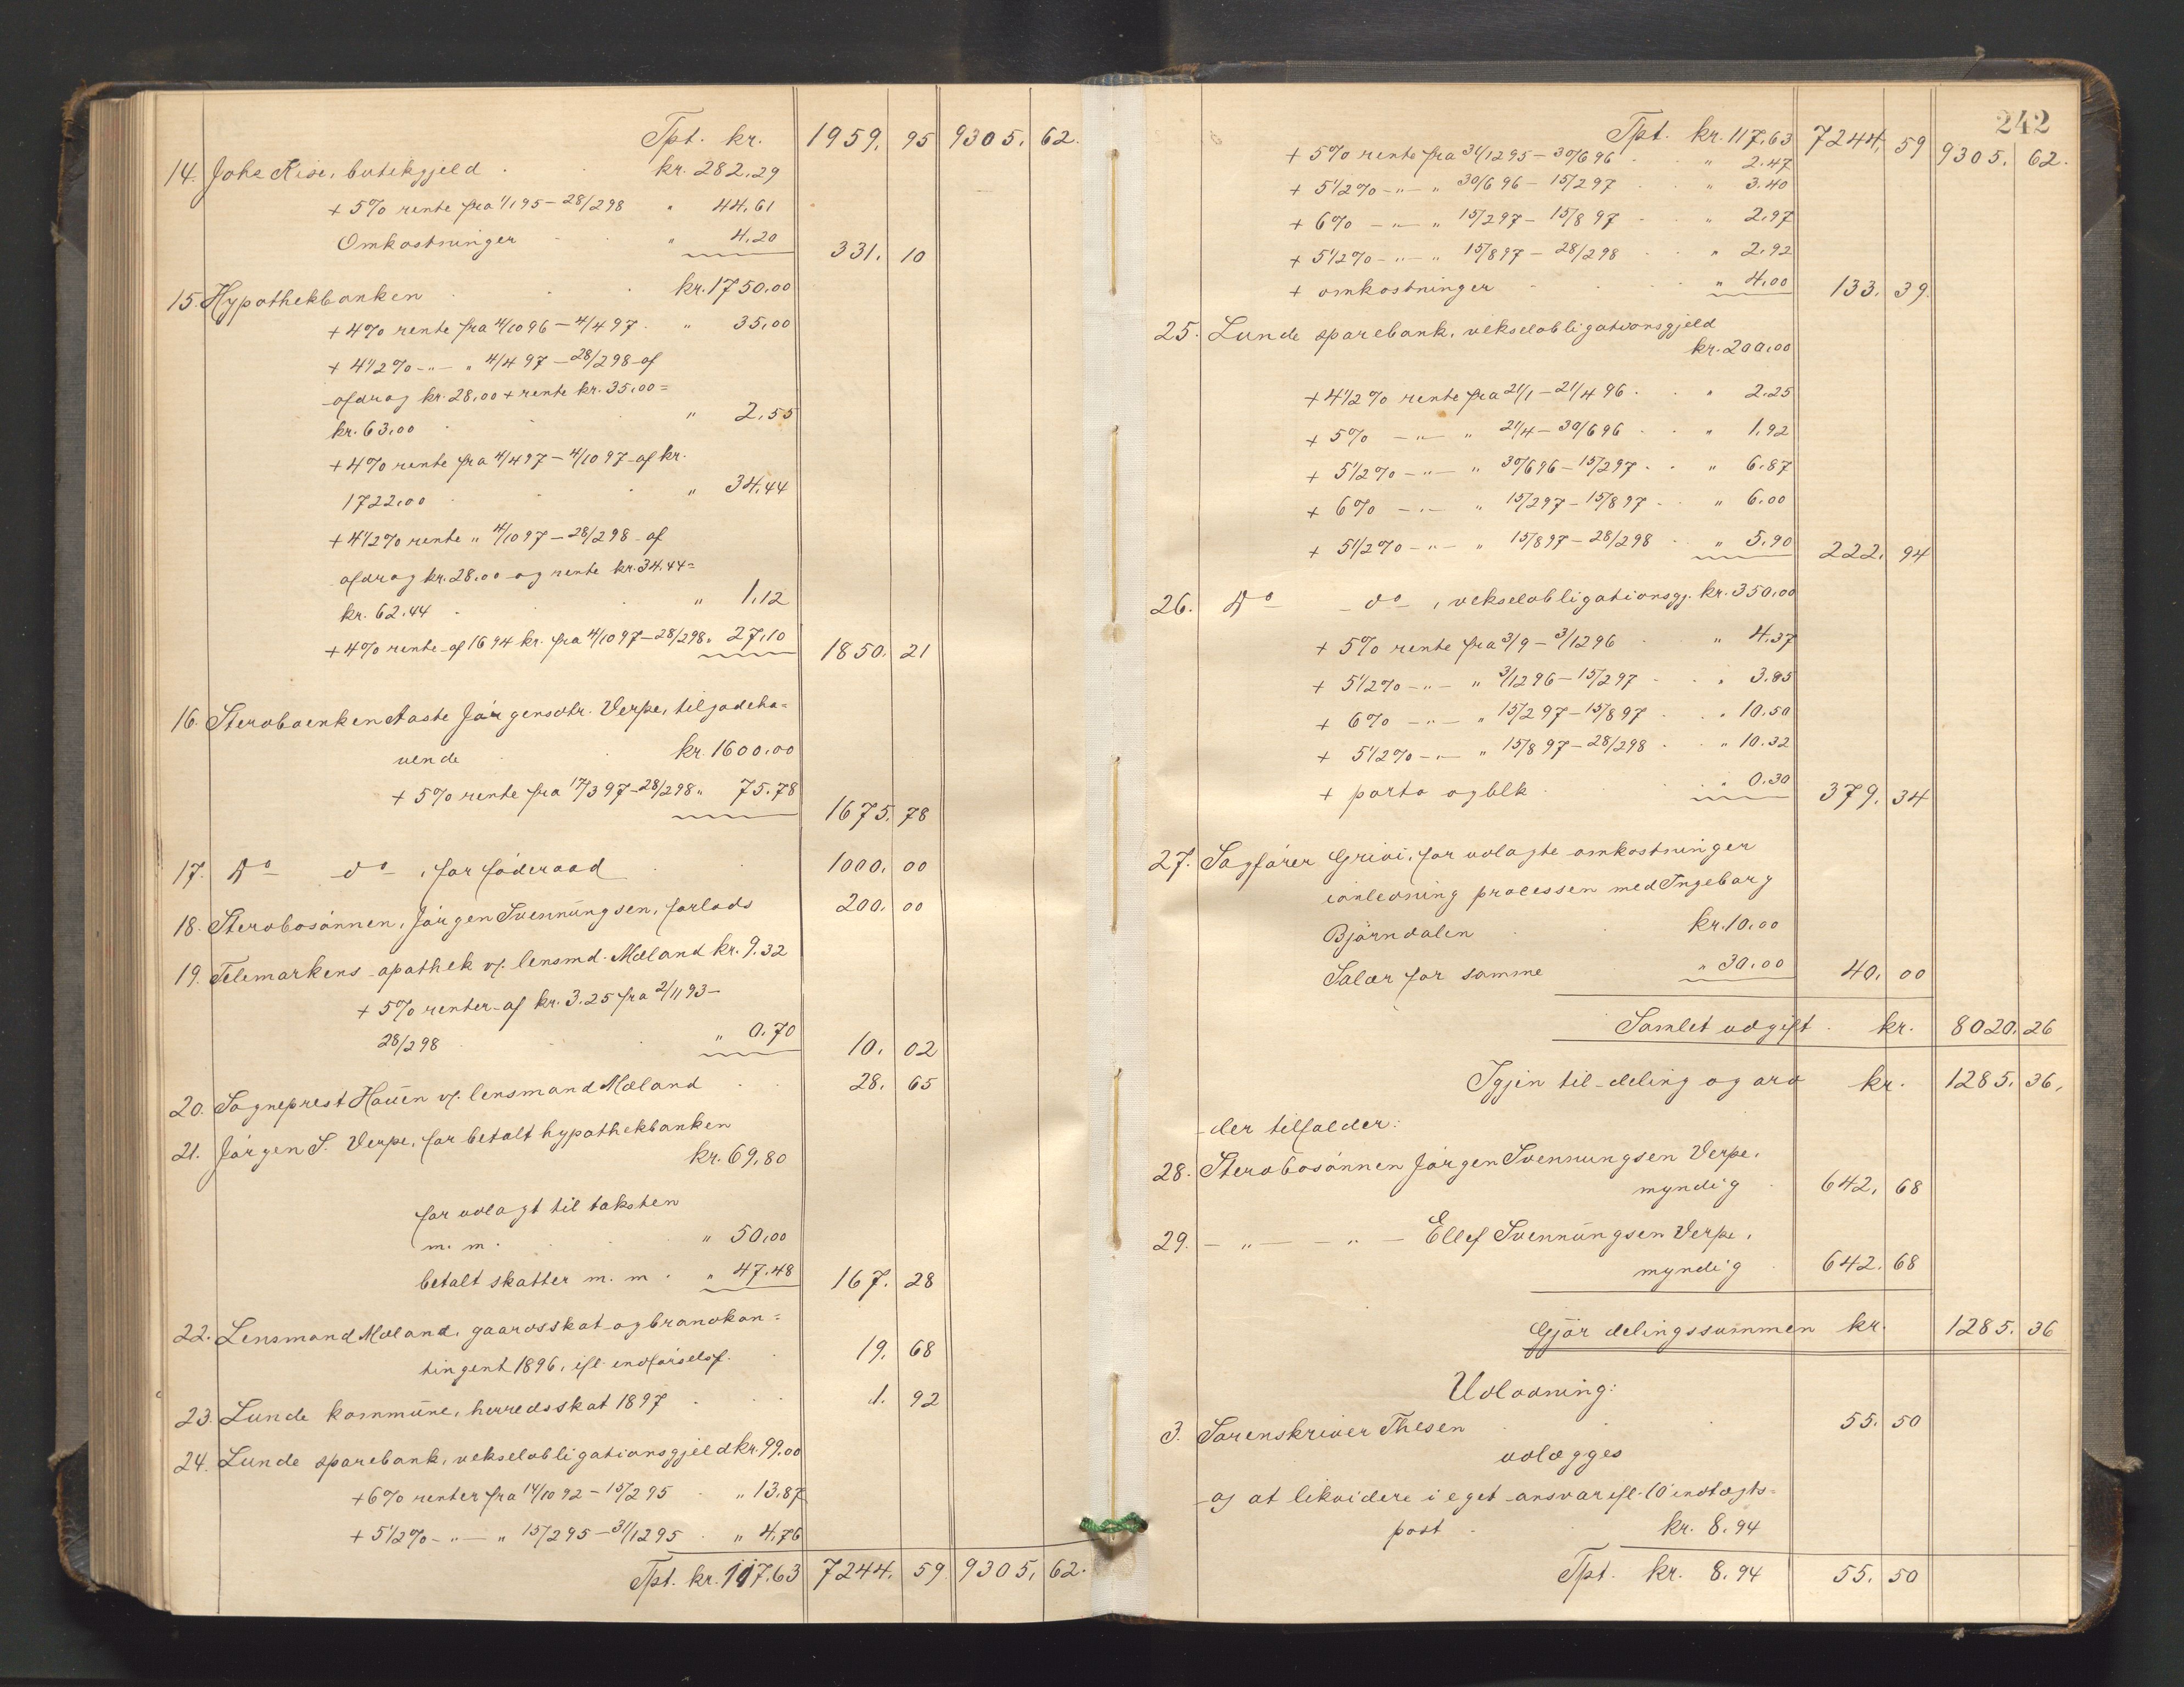 Tpt. kr. 1959. 95 9305. 62.
14. Johs Rise, butikgjeld kr. 282.29
+ 5% rente fra 1/1 95 – 28/2 98 " 44.61
Omkostninger " 4.20 331. 10
15. Hypothekbanken kr. 1750.00
+ 4% rente fra 4/10 96 – 4/4 97 " 35.00
+ 4 1/2 % –"– " 4/4 97 – 28/2 98 af
afdrag kr. 28.00 + rente kr. 35.00 =
kr. 63.00 " 2.55
+ 4% rente fra 4/4 97 – 4/10 97 af kr.
1722.00 " 34.44
+ 4 1/2 % rente " 4/10 97 – 28/2 98 af
afdrag kr. 28.00 og rente kr. 34.44 =
kr. 62.44 " 1.12
+ 4% rente af 1694 kr. fra 4/10 97 – 28/2 98 " 27.10 1850. 21
16. Stervboenken Aaste Jörgensdtr. Verpe, tilgodeha=
vende kr. 1600.00
+ 5% rente fra 17/3 97 – 28/2 98 " 75.78 1675. 78
17. Do do, for föderaad 1000. 00
18. Stervbosönnen, Jörgen Svennungsen, forlods 200. 00
19. Telemarkens apothek v/. lensmd. Mæland kr. 9.32
+ 5% renter af kr. 3.25 fra 2/11 93 –
28/2 98 " 0.70 10. 02
20. Sogneprest Hauen v/. lensmand Mæland 28. 65
21. Jörgen S. Verpe, for betalt hypothekbanken
kr. 69.80
for udlagt til taksten
m. m. " 50.00
betalt skatter m. m. " 47.48 167. 28
22. Lensmand Mæland, gaardsskat og brandkon=
tingent 1896, ifl. indförselsf. 19. 68
23. Lunde kommune, herredsskat 1897 1. 92
24. Lunde sparebank, vekselobligationsgjeld kr. 99.00
+ 6% renter fra 14/10 92 – 15/2 95 " 13.87
+ 5 1/2 % –"– " 15/2 95 – 31/12 95 " 4.76
Tpt. kr. 117.63 7244. 59. 9305. 62.
242
Tpt. kr. 117.63 7244. 59 9305. 62.
+ 5% rente fra 31/12 95 – 30/6 96 " 2.47
+ 5 1/2 % –"– " 30/6 96 – 15/2 97 " 3.40
+ 6% –"– " 15/2 97 – 15/8 97 " 2.97
+ 5 1/2 % –"– " 15/8 97 – 28/2 98 " 2.92
+ omkostninger " 4.00 133. 39.
25. Lunde sparebank, vekselobligationsgjeld
kr. 200.00
+ 4 1/2 % rente fra 21/1 – 21/4 96 " 2.25
+ 5% –"– " 21/4 – 30/6 96 " 1.92
+ 5 1/2 % –"– " 30/6 96 – 15/2 97 " 6.87
+ 6% –"– " 15/2 97 – 15/8 97 " 6.00
+ 5 1/2 % –"– " 15/8 97 – 28/2 98 " 5.90 222. 94
26. Do do, vekselobligationsgj. kr. 350.00
+ 5% rente fra 3/9 – 3/12 96 " 4.37
+ 5 1/2 % –"– " 3/12 96 – 15/2 97 " 3.85
+ 6% –"– " 15/2 97 – 15/8 97 " 10.50
+ 5 1/2 % –"– " 15/8 97 – 28/2 98 " 10.32
+ porto og blk " 0.30 379. 34
27. Sagförer Grivi, for udlagte omkostninger
ianledning processen med Ingeborg
Björndalen kr. 10.00
Salær for samme " 30.00 40. 00
Samlet udgift kr. 8020. 26
Igjen til deling og arv kr. 1285. 36.
der tilfalder:
28. Stervbosönnen Jörgen Svennungsen Verpe,
myndig 642. 68
29. –"– –"– Ellef Svennungsen Verpe,
myndig 642. 68
Gjör delingssummen kr. 1285. 36
Udlodning:
3. Sorenskriver Thesen 55. 50
udlægges
af at likvidere i eget ansvar ifl. 10 indtægts=
post kr. 8.94
Tpt. kr. 8.94 55. 50